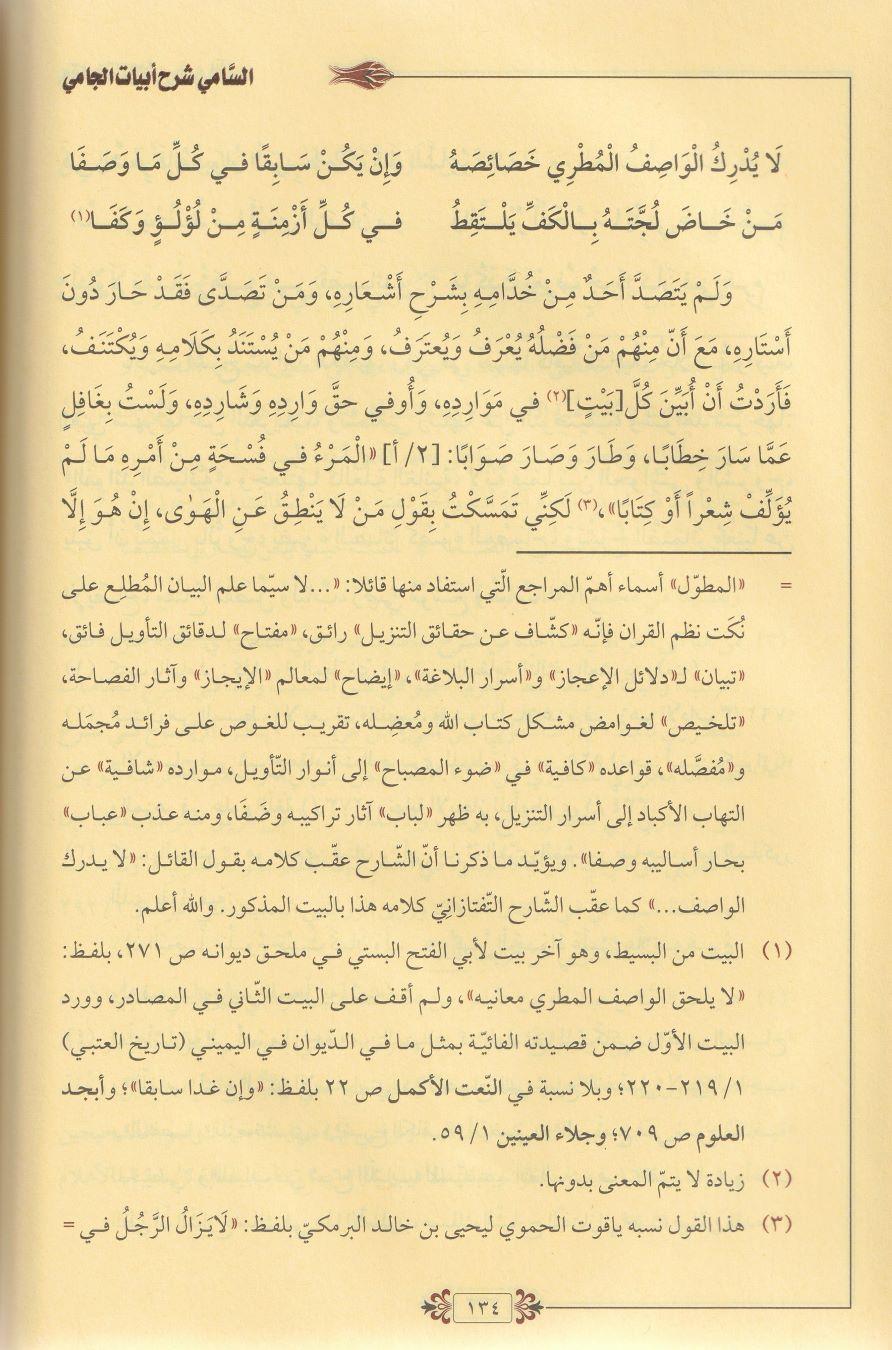 السَّامي شرح أبيات الجامي
لَا يُدْرِكُ الْوَاصِفُ الْمُطْرِي خَصَائِصَهُ وَإِنْ يَكُـنْ سَـابِقًا فـي كُـلِّ مَـا وَصَـفَا
مَـنْ خَـاضَ لُجَّتَـهُ بِـالْكَفِّ يَلْـتَقِطُ فـي كُـلِّ أَزْمِنَـةٍ مِـنْ لُؤْلُـؤٍ وَكَفَـا(١)
وَلَـمْ يَتَصَـدَّ أَحَـدٌ مِـنْ خُدَّامِـهِ بِشَـرْحِ أَشْـعَارِهِ، وَمَـنْ تَصَـدَّى فَقَـدْ حَـارَ دُونَ
أَسْتَارِهِ، مَعَ أَنّ مِنْهُمْ مَنْ فَضْلُهُ يُعْرَفُ وَيُعتَرَفُ، وَمِنْهُمْ مَنْ يُسْتَنَدُ بِكَلَامِـهِ وَيُكْتَنَـفُ،
فَأَرَدْتُ أَنْ أُبَيِّنَ كُلَّ[بَيْتٍ](٢) في مَوَارِدِهِ، وَأُوفي حقَّ وَارِدِهِ وَشَارِدِهِ، وَلَسْتُ بِغَافِلٍ
عَمَّا سَارَ خِطَابًـا، وَطَـارَ وَصَـارَ صَـوَابًا: [٢/ أ] «الْمَـرْءُ فـي فُسْحَةٍ مِـنْ أَمْـرِهِ مَـا لَـمْ
يُؤَلِّفْ شِعْراً أَوْ كِتَابًا»،(٣) لَكِنِّي تَمَسَّكْتُ بِقَوْلِ مَنْ لَا يَنْطِقُ عَـنِ الْهَـوٰى، إِنْ هُـوَ إِلَّا
= «المطوّل» أسماء أهمّ المراجع الّتي استفاد منها قائلا: «...لا سيّما علم البيـان المُطلِـع علـى
نُكَت نظم القران فإنّـه «كشّاف عـن حقائق التنزيـل» رائـق، «مفتـاح» لـدقائق التأويـل فائق،
«تبيان» لـ«دلائل الإعجاز» و«أسرار البلاغة»، «إيضاح» لمعالم «الإيجاز» وآثـار الفصـاحة،
«تلخـيص» لغـوامض مشـكل كتـاب الله ومُعضِـله، تقريـب للغـوص علـى فرائـد مُجمَلـه
و«مُفصَّله»، قواعده «كافية» في «ضوء المصباح» إلى أنـوار التّأويل، مـوارده «شافية» عـن
التهاب الأكباد إلى أسرار التنزيل، به ظهر «لباب» آثار تراكيبه وضَفَا، ومنـه عذب «عبـاب»
بحار أساليبه وصفا». ويؤيّد ما ذكرنـا أنّ الشّارح عقّب كلامـه بقـول القائـل: «لا يـدرك
الواصف...» كما عقّب الشّارح التّفتازانيّ كلامه هذا بالبيت المذكور. والله أعلم.
(١) البيت مـن البسيط، وهـو آخر بيت لأبي الفتح البستي فـي ملحق ديوانـه ص ٢٧١، بلفـظ:
«لا يلحق الواصف المطري معانيه»، ولـم أقـف علـى البيت الثّاني فـي المصادر، وورد
البيت الأوّل ضـمن قصيدته الفائيّـة بمثـل مـا فـي الـدّيوان فـي اليمينـي (تـاريخ العتبـي)
١/ ٢١٩-٢٢٠؛ وبلا نسبة في النّعت الأكمـل ص ٢٢ بلفظ: «وإن غدا سـابقا»؛ وأبجـد
العلوم ص ٧٠٩؛ وجلاء العينين ١/ ٥٩.
(٢) زيادة لا يتمّ المعنى بدونها.
(٣) هذا القول نسبه ياقوت الحموي ليحيى بن خالد البرمكيّ بلفـظ: «لَايَـزَالُ الرَّجُـلُ فـي =
١٣٤